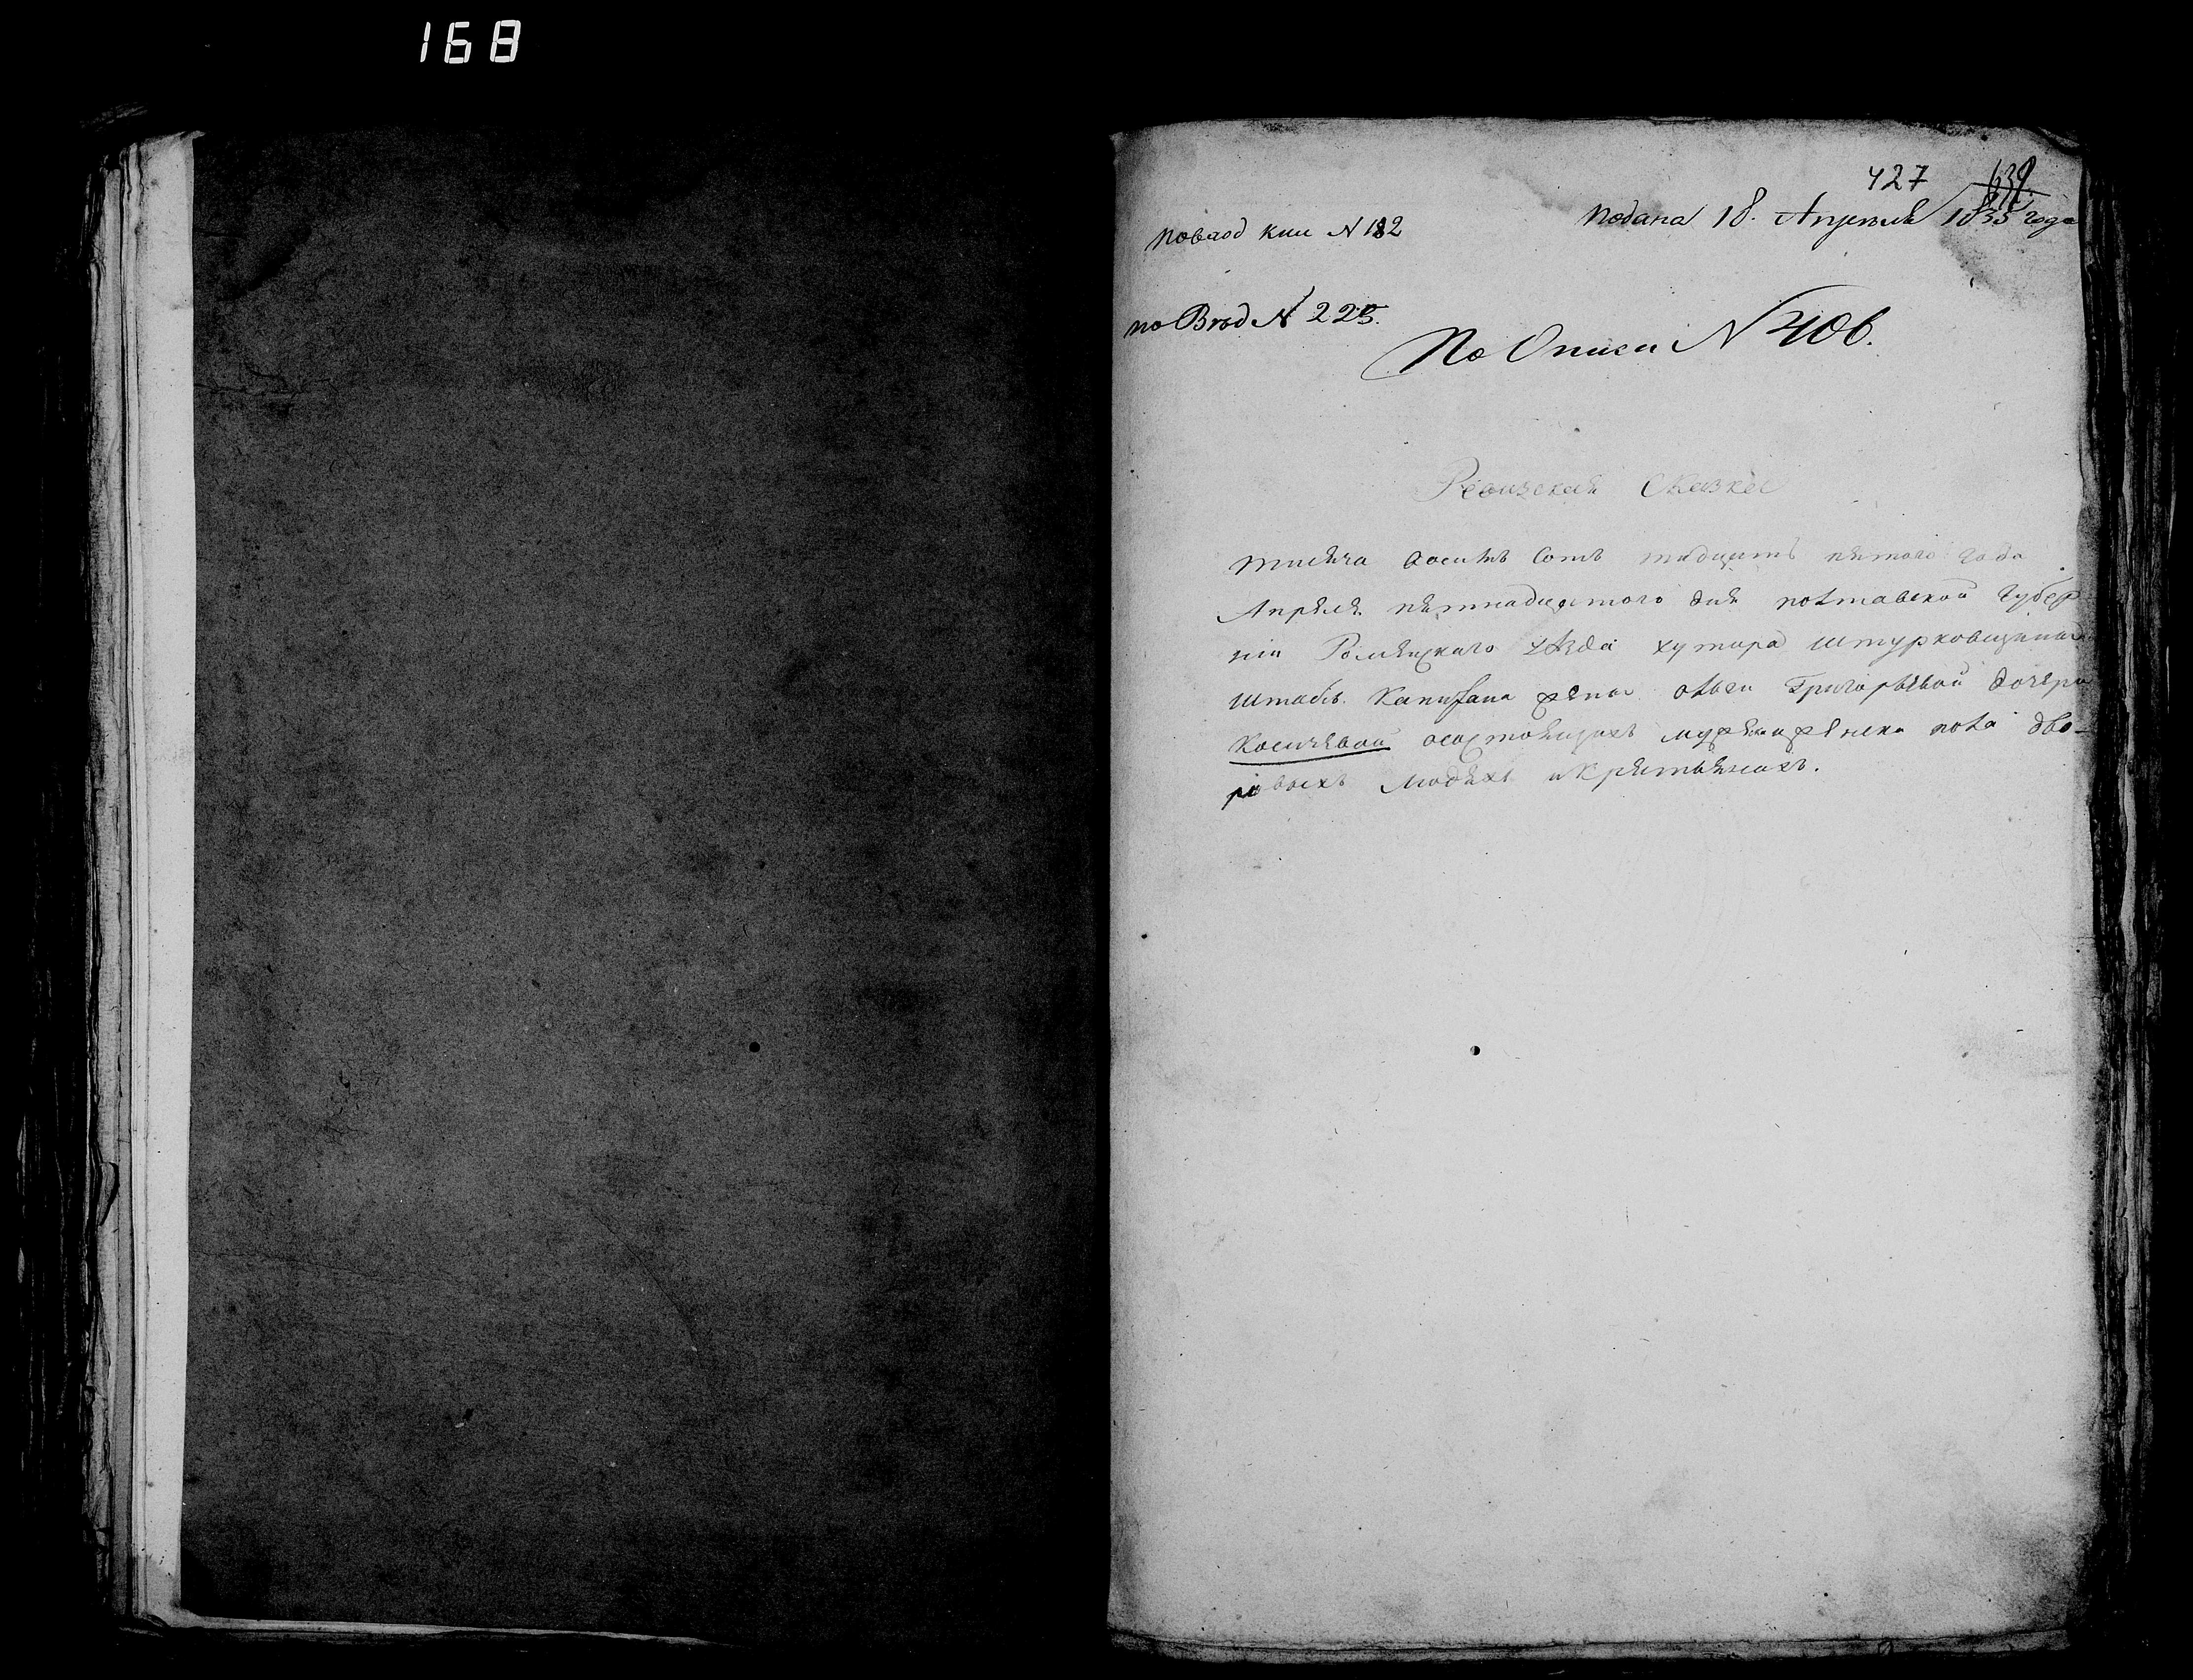 168
427
Подана 18. Апреля 1835 года
По вход кни N 182
по Вход N 225.
По Описи N 406.
Ревизская Сказка
тисяча восимъ сотъ тидцатъ пятого года
Апреля пятнадцятого дня полтавской Губер
нія Роменского уезда хутора Штурковщины
Штабъ Капитана жены олги Григорьевой дочери
Косичевой осостоящихъ мужеска иженска пола дво-
ровыхъ людяхъ икрятьянахъ.